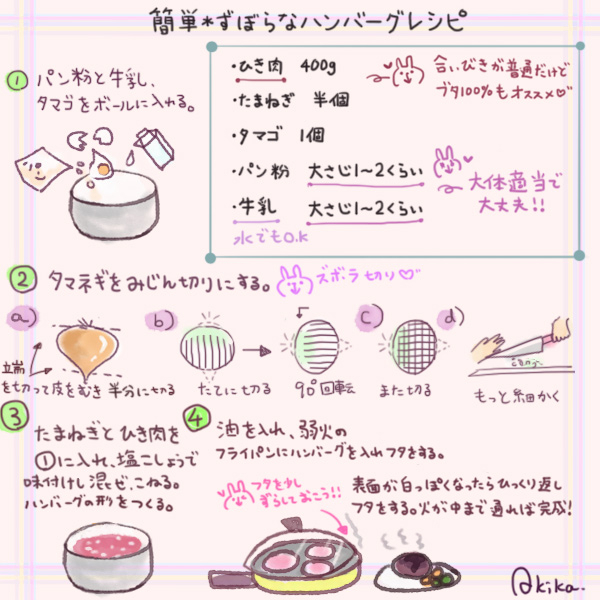 簡単*ずぼらなハンバーグレシピ
① パン粉と牛乳、
タマゴをボールに入れる。
・ひき肉 400g
合いびきが普通だけど
ブタ100%もオススメ♡
・たまねぎ 半個
・タマゴ 1個
・パン粉 大さじ1〜2くらい
・牛乳 大さじ1〜2くらい
水でもO.K
大体適当で
大丈夫!!
② タマネギをみじん切りにする。
ズボラ切り♡
a)
b)
c)
d)
端
を切って皮をむき 半分に切る
たてに切る
90°回転
また切る
もっと細かく
③
たまねぎとひき肉を
①に入れ、塩こしょうで
味付けし混ぜ、こねる。
ハンバーグの形をつくる。
④ 油を入れ、弱火の
フライパンにハンバーグを入れフタをする。
フタを少し
ずらしておこう!!
表面が白っぽくなったらひっくり返し
フタをする。火が中まで通れば完成!
@kika.